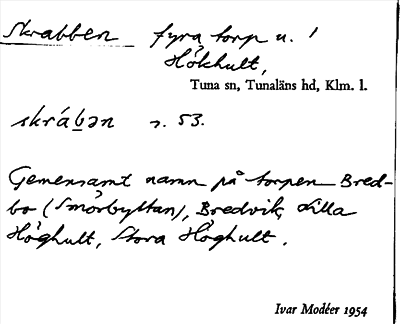 Skrabben fyra torp u. 1
Hökhult,
Tuna sn, Tunaläns hd, Klm. l.
skráb̲ən s. 53.
Gemensamt namn på torpen Bred-
bo (Smörbyttan), Bredvik, Lilla
Höghult, Stora Höghult.
Ivar Modéer 1954